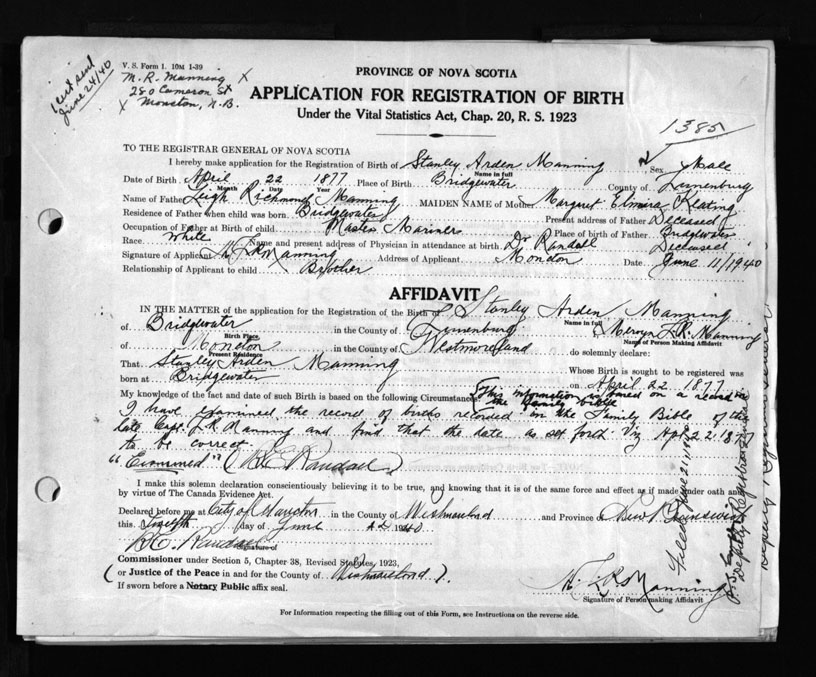 1 cert send
June 24/40
V. S. Form 1. 10M 1-39
M. R. Manning X
280 Cameron St
X Moncton, N.B.
PROVINCE OF NOVA SCOTIA
APPLICATION FOR REGISTRATION OF BIRTH
Under the Vital Statistics Act, Chap. 20, R. S. 1923
1385
TO THE REGISTRAR GENERAL OF NOVA SCOTIA
I hereby make application for the Registration of Birth of Stanley Arden Manning Sex Male
Name in full
Date of Birth April 22 1877 Place of Birth Bridgewater County of Lunenburg
Month Date Year
Name of Father Leigh Richmond Manning MAIDEN NAME of Mother Margaret Elmira Keating
Residence of Father when child was born Bridgewater Present address of Father Deceased
Occupation of Father at Birth of child Master Mariner Place of birth of Father Bridgewater
Race White Name and present address of Physician in attendance at birth Dr Randall Deceased
Signature of Applicant M L R Manning Address of Applicant Moncton Date June 11/1940
Relationship of Applicant to child Brother
AFFIDAVIT
IN THE MATTER of the application for the Registration of the Birth of Stanley Arden Manning
Name in full
of Bridgewater in the County of Lunenburg Mervyn L.R. Manning
Birth Place Name of Person Making Affidavit
of Moncton in the County of Westmoreland do solemnly declare:
Present Residence
That Stanley Arden Manning Whose Birth is sought to be registered was
born at Bridgewater on April 22 1877
My knowledge of the fact and date of such Birth is based on the following Circumstances This information is on a record in the family bible
I have examined the record of births recorded in the Family Bible of the
late Capt. L.R. Manning and find that the date as set forth Viz Apl 22 1877
to be correct
"Examined" (B.E. Randall)
I make this solemn declaration conscientiously believing it to be true, and knowing that it is of the same force and effect as if made under oath and by virtue of The Canada Evidence Act.
Declared before me at City of Moncton in the County of Westmorland and Province of New Brunswick
this Twelfth day of June A.D. 1940
B.E. Randall
Signature of
Commissioner under Section 5, Chapter 38, Revised Statutes, 1923,
(or Justice of the Peace in and for the County of Westmorland).
If sworn before a Notary Public affix seal.
M. L R Manning
Signature of Person making Affidavit
For Information respecting the filling out of this Form, see Instructions on the reverse side.
Filed June 21, 1940
Deputy Registrar General
Deputy Registrar General